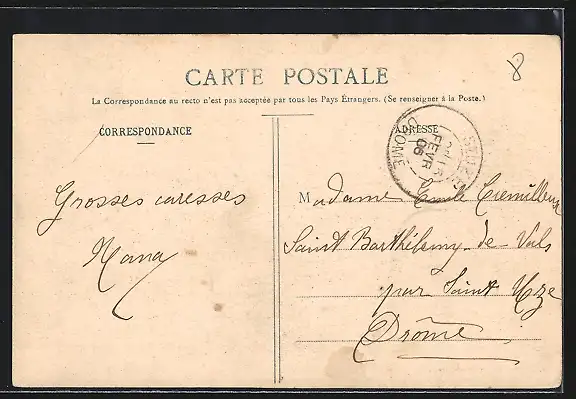 8
CARTE POSTALE
La Correspondance au recto n'est pas acceptée par tous les Pays Étrangers. (Se renseigner à la Poste.)
CORRESPONDANCE
ADRESSE
FEVR
06
DROME
Grosses caresses
Nana
Madame Emile Cremilleux
Saint Barthélemy-de-Vals
par Saint Uze
Drôme